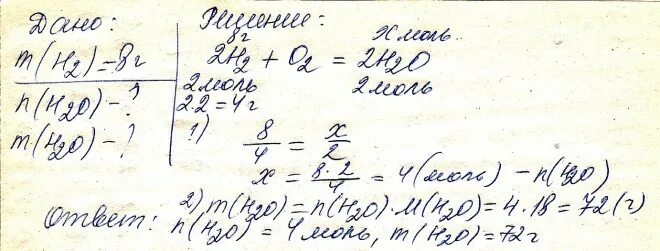 Дано:
m(H2)=8г
n(H2O)-?
m(H2O)-?
Решение:
8г х моль
2H2 + O2 = 2H2O
2моль 2моль
2·2=4г
1) 8/4 = x/2
x = 8·2/4 = 4(моль) - n(H2O)
2) m(H2O)=n(H2O)·M(H2O)=4·18=72(г)
Ответ: n(H2O)=4моль, m(H2O)=72г